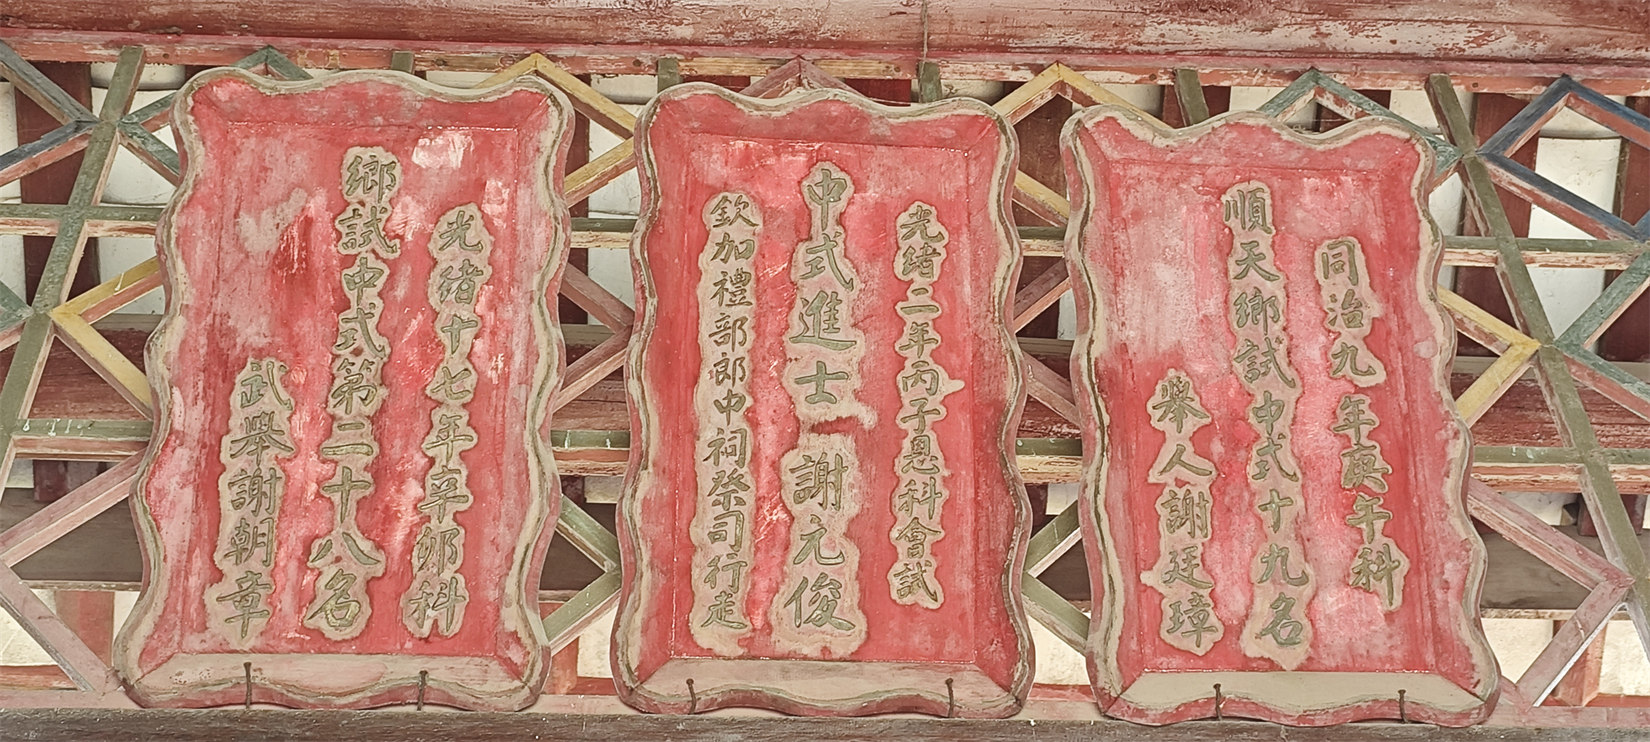 同治九年庚午科
順天鄉試中式十九名
舉人謝廷璋
光緒二年丙子恩科會試
中式進士謝元俊
欽加禮部郎中祠祭司行走
光緒十七年辛卯科
鄉試中式第二十八名
武舉謝朝章